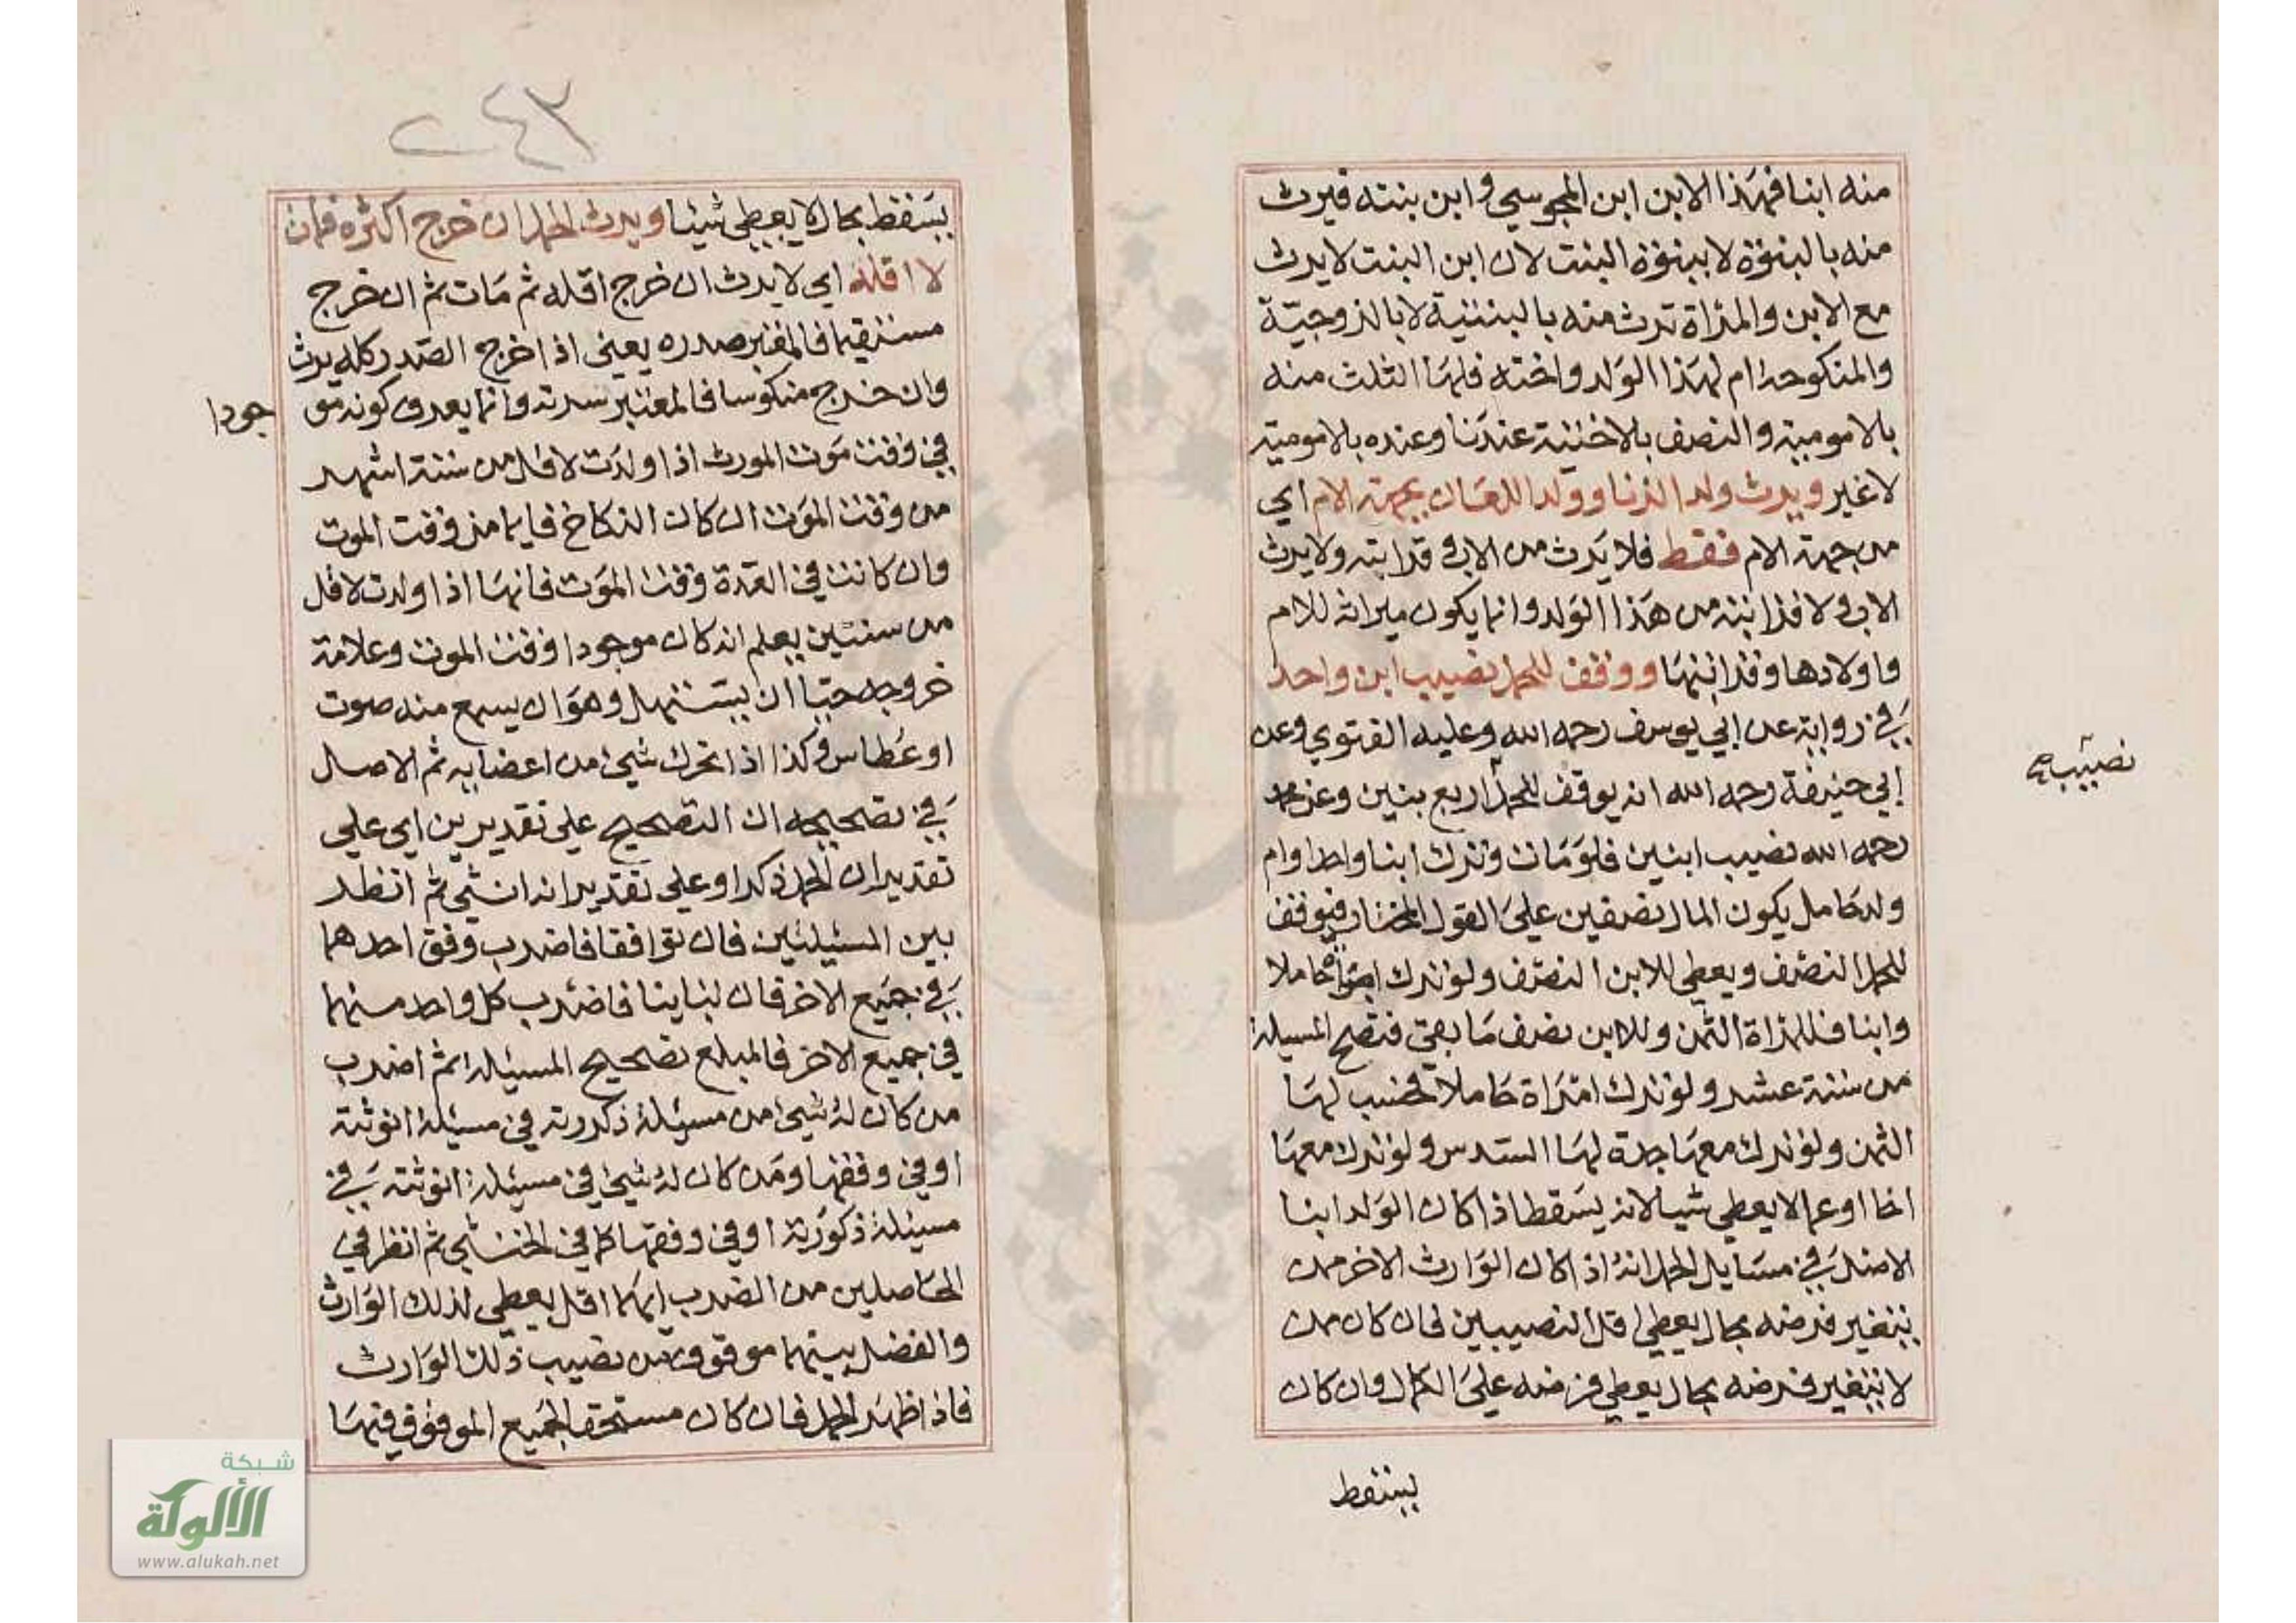 منه ابنا فهذا الابن ابن المجوسي وابن بنته فيرث
منه بالبنوة لا ببنوة البنت لان ابن البنت لا يرث
مع الابن والمراة ترث منه بالبنتية لا بالزوجية
والمنكوحة ام لهذا الولد واخته فلها الثلث منه
بالامومية والنصف بالاختية عندنا وعنده بالامومية
لا غير ويرث ولد الزنا وولد اللعان بجهة الام اي
من جهة الام فقط فلا يرث من الاب وقرابته ولا يرث
الاب ولا قرابته من هذا الولد وانما يكون ميراثه للام
واولادها وقرابتها ووقف للحمل نصيب ابن واحد
في رواية عن ابي يوسف رحمه الله وعليه الفتوي وعن
ابي حنيفة رحمه الله انه يوقف للحمل اربع بنين وعن محمد
نصيب
رحمه الله نصيب ابنين فلو مات وترك ابنا واحدا وام
ولد حامل يكون المال نصفين علي القول المختار فيوقف
للحمل النصف ويعطي للابن النصف ولو ترك امراة حاملا
وابنا فللمراة الثمن وللابن نصف ما بقي فتصح المسيلة
من ستة عشر ولو ترك امراة حاملا فحسب لها
الثمن ولو ترك معها جدة لها السدس ولو ترك معها
اخا او عما لا يعطي شيا لانه يسقط اذا كان الولد ابنا
الاصل في مسايل الحمل انه اذا كان الوارث الاخر ممن
يتغير فرضه بحال يعطي اقل النصيبين فان كان ممن
لا يتغير فرضه بحال يعطي فرضه علي الكمال وان كان
يسقط
٢٤٣
يسقط بحال لا يعطي شيئا ويرث الحمل ان خرج اكثره فمات
لا اقله اي لا يرث ان خرج اقله ثم مات ثم ان خرج
مستقيما فالمعتبر صدره يعني اذا خرج الصدر كله يرث
وان خرج منكوسا فالمعتبر سرته وانما يعرف كونه مو
جودا
في وقت موت المورث اذا ولدت لاقل من ستة اشهر
من وقت الموت ان كان النكاح قايما من وقت الموت
وان كانت في العدة وقت الموت فانها اذا ولدت لاقل
من سنتين يعلم انه كان موجودا وقت الموت وعلامة
خروجه حيا ان يستهل وهو ان يسمع منه صوت
او عطاس وكذا اذا تحرك شيئ من اعضايه ثم الاصل
في تصحيحه ان التصحيح علي تقديرين اي علي
تقدير ان الحمل ذكر او علي تقدير انه انثي ثم انظر
بين المسيلتين فان توافقا فاضرب وفق احدهما
في جميع الاخر فان تباينا فاضرب كل واحد منهما
في جميع الاخر فالمبلغ تصحيح المسيلة ثم اضرب
من كان له شيئ من مسيلة ذكورته في مسيلة انوثته
او في وفقها ومن كان له شيئ في مسيلة انوثته في
مسيلة ذكورته او في وفقها كما في الخنثي ثم انظر في
الحاصلين من الضرب ايهما اقل يعطي لذلك الوارث
والفضل بينهما موقوف من نصيب ذلك الوارث
فاذا ظهر الحمل فان كان مستحقا لجميع الموقوف فبها
شبكة
الألوكة
www.alukah.net